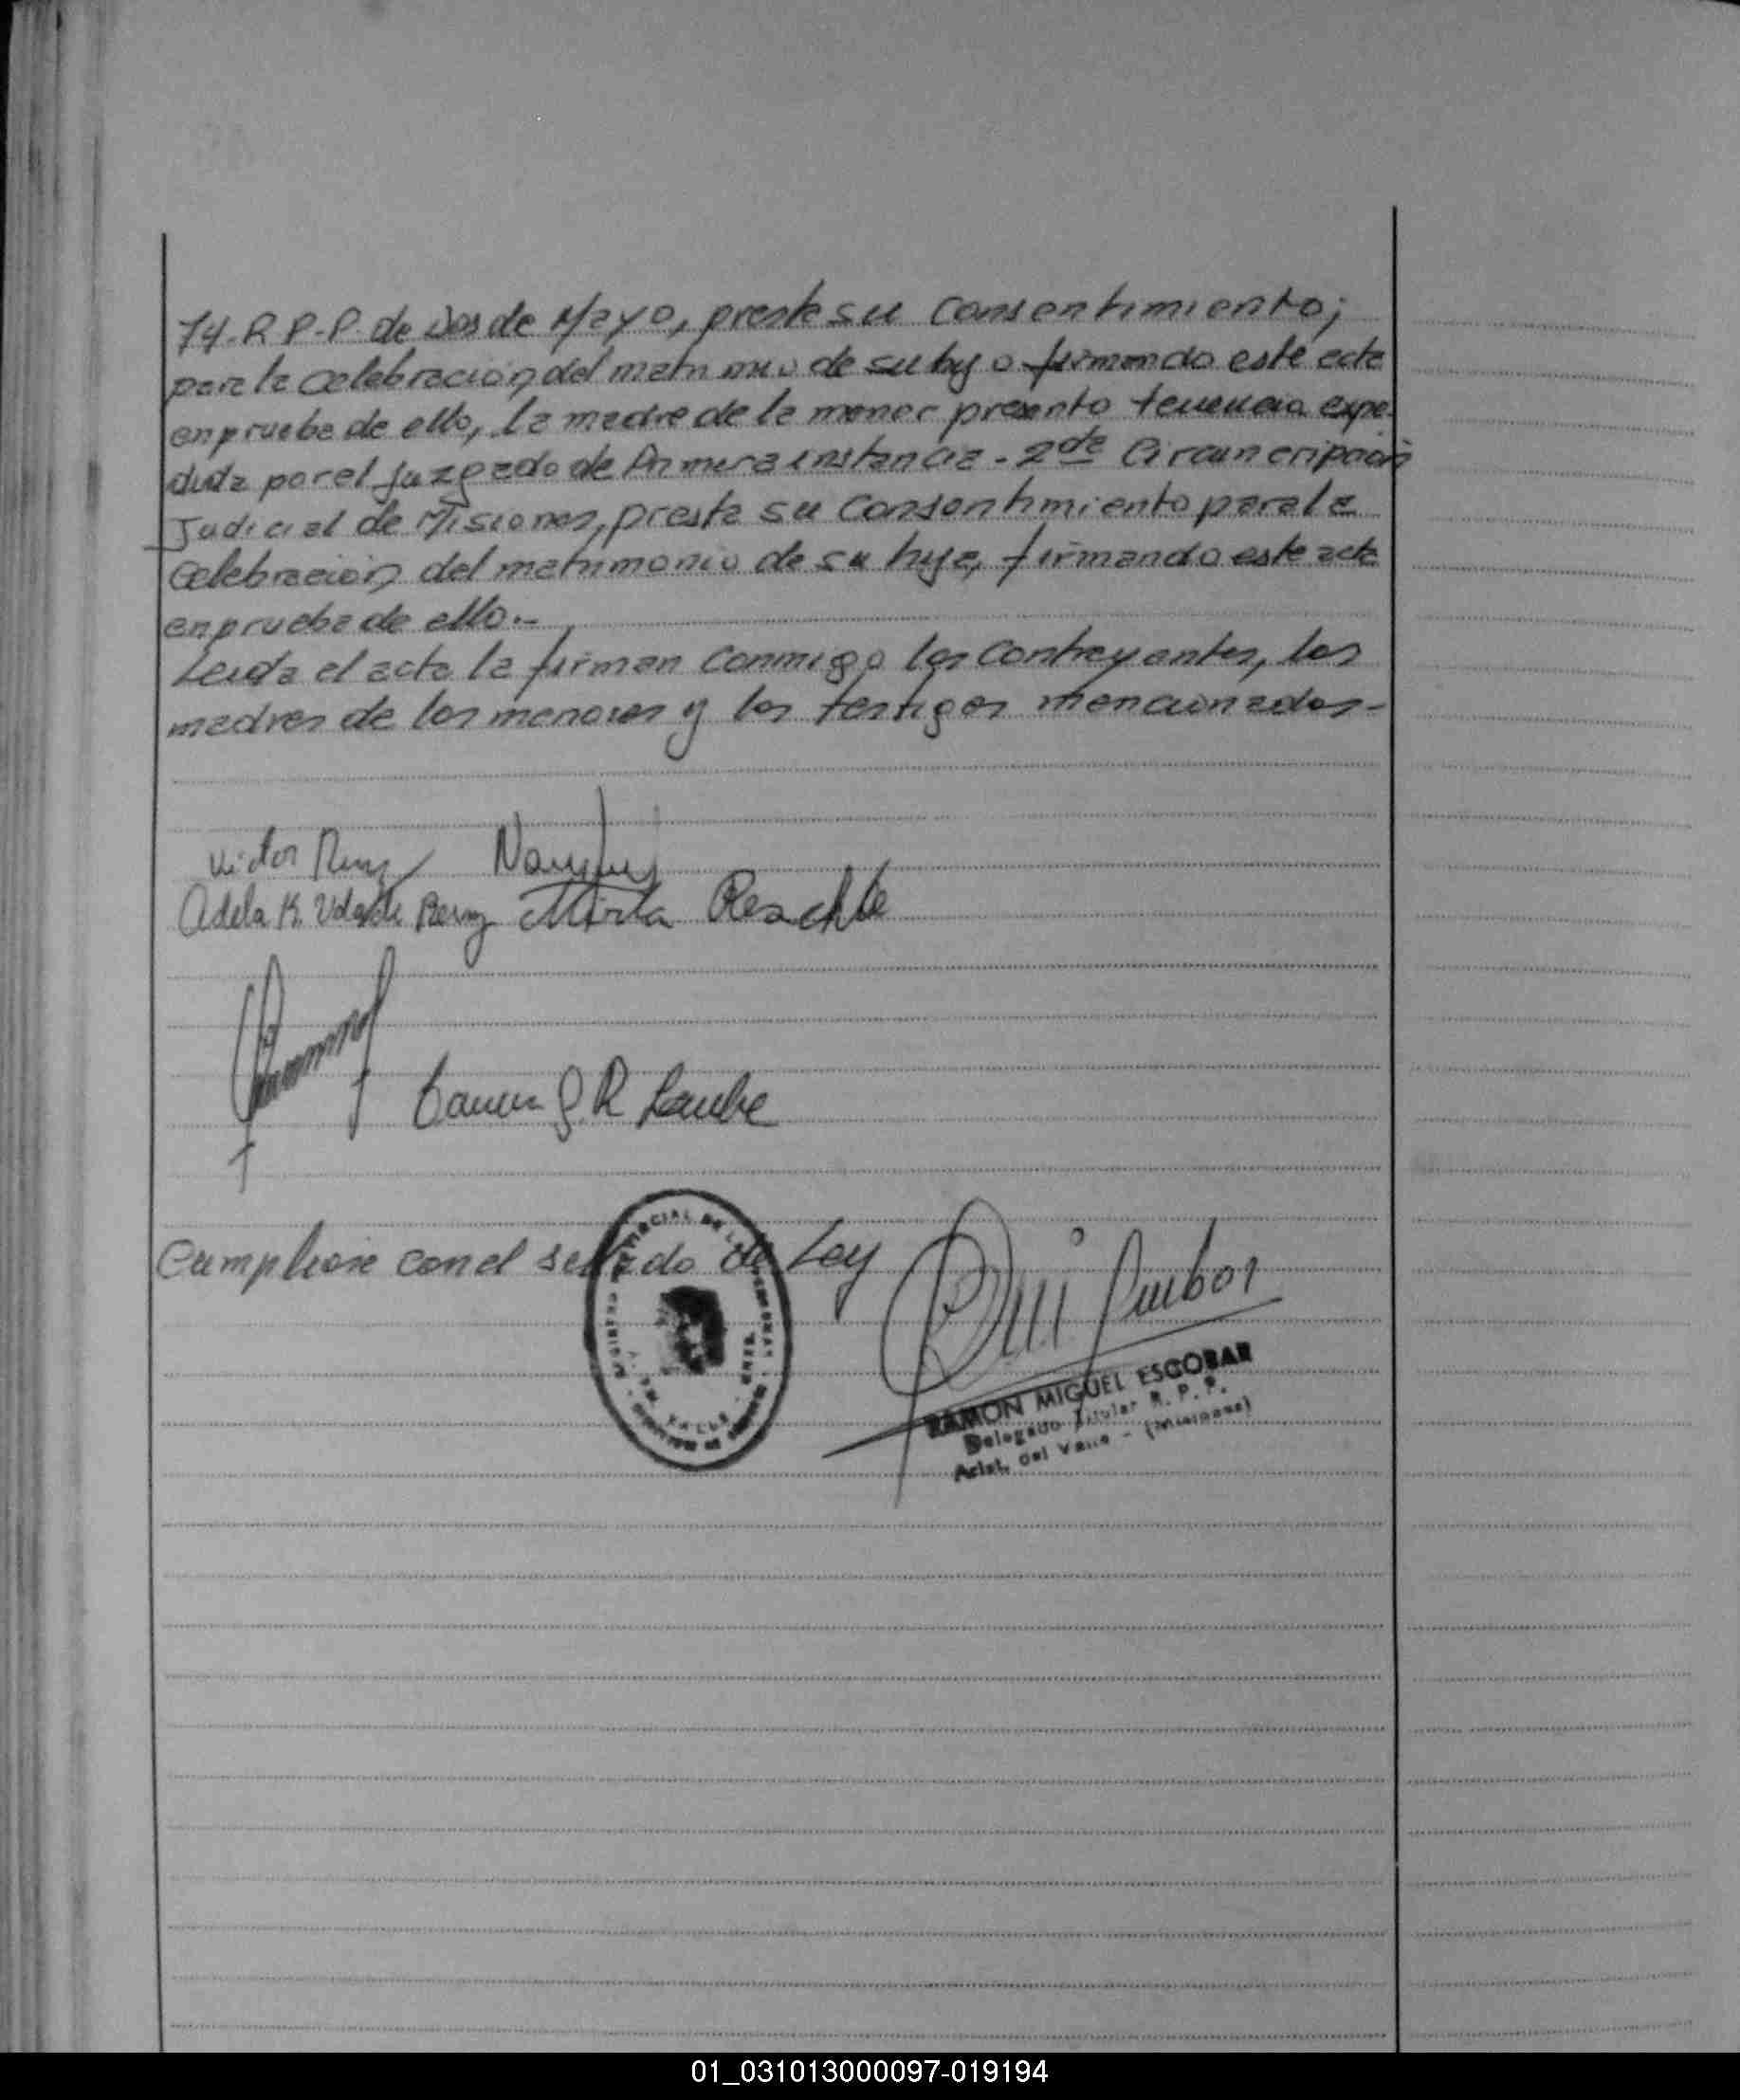 74.R.P.P. de Dos de Mayo, preste su Consentimiento;
para la celebración, del matrimonio de su hijo firmando este acta
en prueba de ello, la madre de la menor presento tenencia expe-
dida por el Juzgado de Primera instancia - 2da Circuncripción
Judicial de Misiones, presta su Consentimiento para la
Celebración del matrimonio de su hija, firmando este acta
en prueba de ello.-
Leida el acta la firman Conmigo los Contrayentes, las
madres de los menores y los testigos mencionados-
Victor
Adela K. Vda de Mirta
Cumplióse con el sellado de Ley
RAMON MIGUEL ESCOBAR
Delegado Titular R. P. P.
Arist. del Valle - (Misiones)
01_031013000097-019194